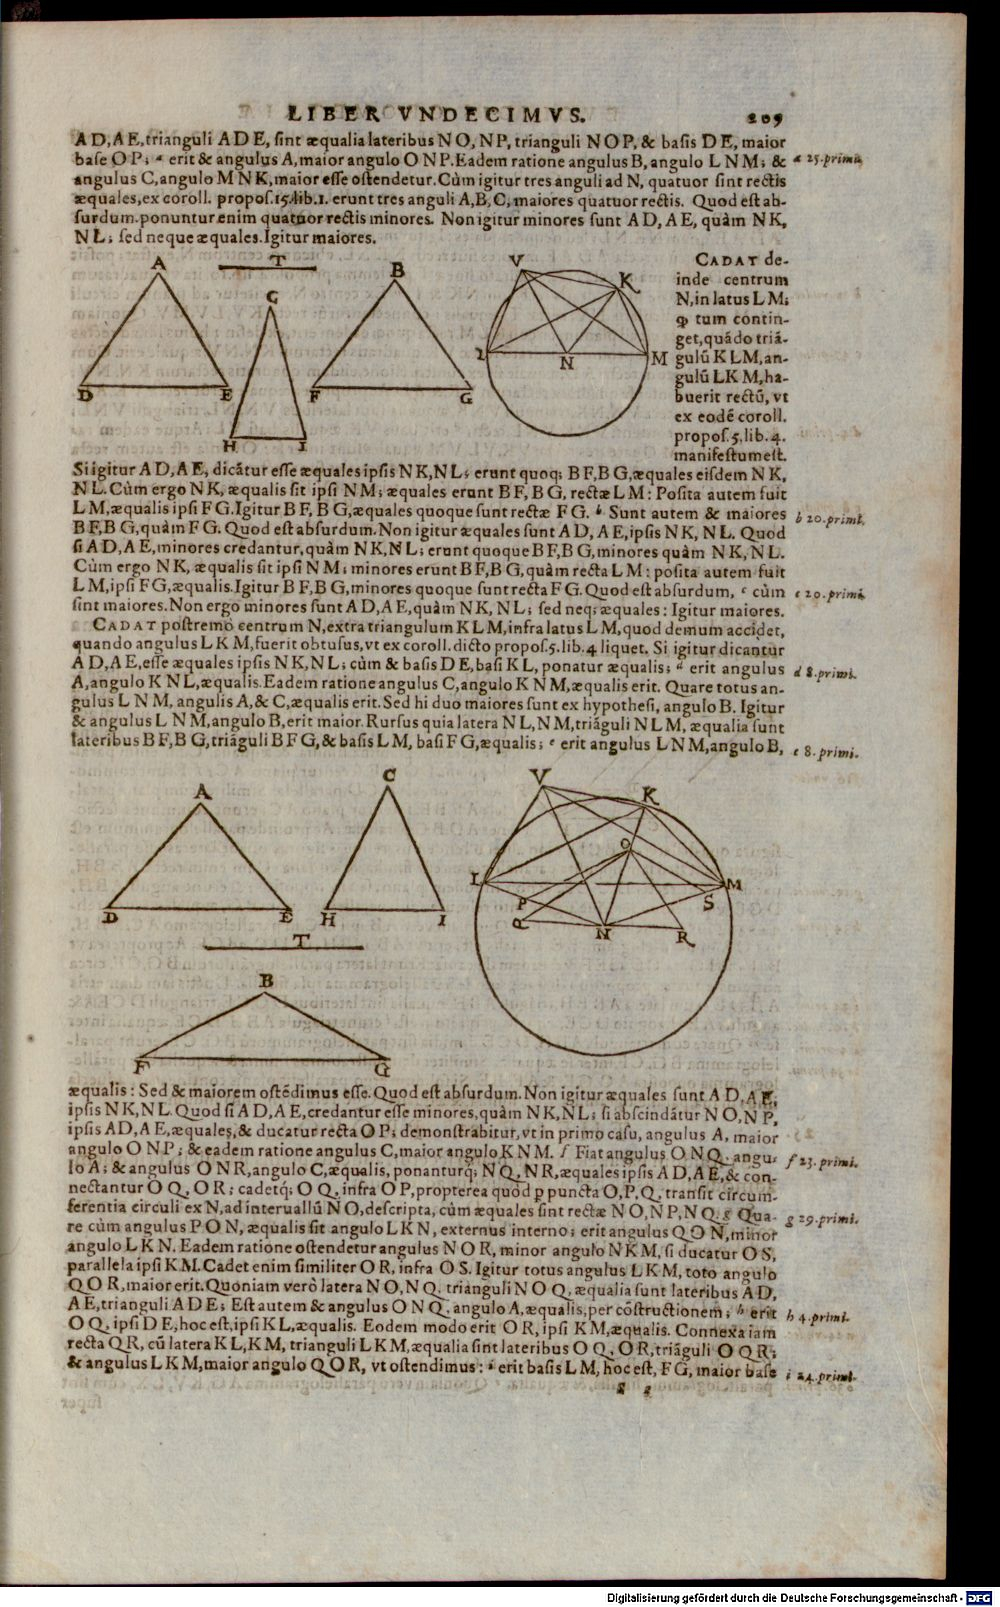 LIBER VNDECIMVS. 209
AD, AE, trianguli ADE, sint æqualia lateribus NO, NP, trianguli NOP, & basis DE, maior
base OP; a erit & angulus A, maior angulo ONP. Eadem ratione angulus B, angulo LNM; &
a 25. primi.
angulus C, angulo MNK, maior esse ostendetur. Cùm igitur tres anguli ad N, quatuor sint rectis
æquales, ex coroll. propos. 15. lib. 1. erunt tres anguli A, B, C, maiores quatuor rectis. Quod est ab-
surdum. ponuntur enim quatuor rectis minores. Non igitur minores sunt AD, AE, quàm NK,
NL; sed neque æquales. Igitur maiores.
A T B C D E F G H I
V K L N M
CADAT de-
inde centrum
N, in latus LM;
ꝙ tum contin-
get, quãdo triã-
gulũ KLM, an-
gulũ LKM, ha-
buerit rectũ, vt
ex eodẽ coroll.
propos. 5. lib. 4.
manifestum est.
Si igitur AD, AE, dicãtur esse æquales ipsis NK, NL; erunt quoq; BF, BG, æquales eisdem NK,
NL. Cùm ergo NK, æqualis sit ipsi NM; æquales erunt BF, BG, rectæ LM: Posita autem fuit
LM, æqualis ipsi FG. Igitur BF, BG, æquales quoque sunt rectæ FG. b Sunt autem & maiores
b 20. primi.
BF, BG, quàm FG. Quod est absurdum. Non igitur æquales sunt AD, AE, ipsis NK, NL. Quod
si AD, AE, minores credantur, quàm NK, NL; erunt quoque BF, BG, minores quàm NK, NL.
Cùm ergo NK, æqualis sit ipsi NM; minores erunt BF, BG, quàm recta LM: posita autem fuit
LM, ipsi FG, æqualis. Igitur BF, BG, minores quoque sunt recta FG. Quod est absurdum, c cùm
c 20. primi.
sint maiores. Non ergo minores sunt AD, AE, quàm NK, NL; sed neq; æquales: Igitur maiores.
CADAT postremò centrum N, extra triangulum KLM, infra latus LM, quod demum accidet,
quando angulus LKM, fuerit obtusus, vt ex coroll. dicto propos. 5. lib. 4 liquet. Si igitur dicantur
AD, AE, esse æquales ipsis NK, NL; cùm & basis DE, basi KL, ponatur æqualis; d erit angulus
d 8. primi.
A, angulo KNL, æqualis. Eadem ratione angulus C, angulo KNM, æqualis erit. Quare totus an-
gulus LNM, angulis A, & C, æqualis erit. Sed hi duo maiores sunt ex hypothesi, angulo B. Igitur
& angulus LNM, angulo B, erit maior. Rursus quia latera NL, NM, triãguli NLM, æqualia sunt
lateribus BF, BG, triãguli BFG, & basis LM, basi FG, æqualis; e erit angulus LNM, angulo B,
e 8. primi.
A C D E H I T B F G
V K O L M P S Q N R
æqualis: Sed & maiorem ostẽdimus esse. Quod est absurdum. Non igitur æquales sunt AD, AE,
ipsis NK, NL. Quod si AD, AE, credantur esse minores, quàm NK, NL; si abscindãtur NO, NP,
ipsis AD, AE, æquales, & ducatur recta OP; demonstrabitur, vt in primo casu, angulus A, maior
angulo ONP; & eadem ratione angulus C, maior angulo KNM. f Fiat angulus ONQ, angu-
f 23. primi.
lo A; & angulus ONR, angulo C, æqualis, ponanturq́; NQ, NR, æquales ipsis AD, AE, & con-
nectantur OQ, OR: cadetq́; OQ, infra OP, propterea quòd ꝑ puncta O, P, Q, transit circum-
ferentia circuli ex N, ad interuallũ NO, descripta, cùm æquales sint rectæ NO, NP, NQ. g Qua-
g 29. primi.
re cùm angulus PON, æqualis sit angulo LKN, externus interno; erit angulus QON, minor
angulo LKN. Eadem ratione ostendetur angulus NOR, minor angulo NKM, si ducatur OS,
parallela ipsi KM. Cadet enim similiter OR, infra OS. Igitur totus angulus LKM, toto angulo
QOR, maior erit. Quoniam verò latera NO, NQ, trianguli NOQ, æqualia sunt lateribus AD,
AE, trianguli ADE; Est autem & angulus ONQ, angulo A, æqualis, per cõstructionem; h erit
h 4. primi.
OQ, ipsi DE, hoc est, ipsi KL, æqualis. Eodem modo erit OR, ipsi KM, æqualis. Connexa iam
recta QR, cũ latera KL, KM, trianguli LKM, æqualia sint lateribus OQ, OR, triãguli OQR;
& angulus LKM, maior angulo QOR, vt ostendimus: i erit basis LM, hoc est, FG, maior base
i 24. primi.
Digitalisierung gefördert durch die Deutsche Forschungsgemeinschaft - DFG